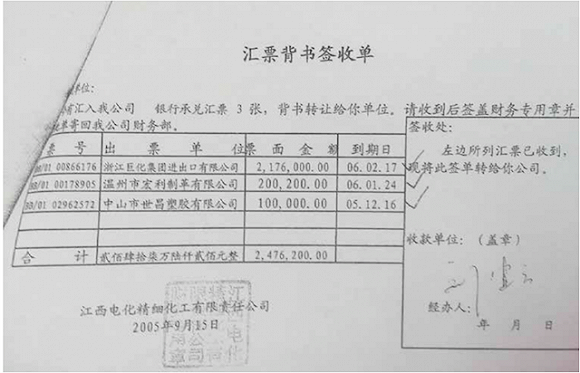 汇票背书签收单
单位:
有汇入我公司 银行承兑汇票 3 张，背书转让给你单位。请收到后签盖财务专用章并
寄回我公司财务部。
票 号 出 票 单 位 票 面 金 额 到期日
/01 00866176 浙江巨化集团进出口有限公司 2,176,000.00 06.02.17
/01 00178905 温州市宏利制革有限公司 200,200.00 06.01.24
/01 02962572 中山市世昌塑胶有限公司 100,000.00 05.12.16
合 计 贰佰肆拾柒万陆仟贰佰元整 2,476,200.00
签收处:
左边所列汇票已收到,
现将此签单转给你公司。
收款单位: (盖章)
经办人:
年 月 日
江西电化精细化工有限责任公司
2005年9月15日